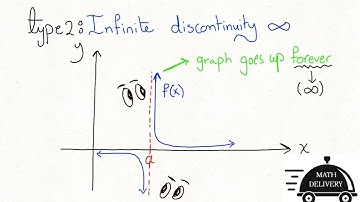 type 2: Infinite discontinuity ∞
y
graph goes up forever
(∞)
f(x)
a
x
MATH
DELIVERY